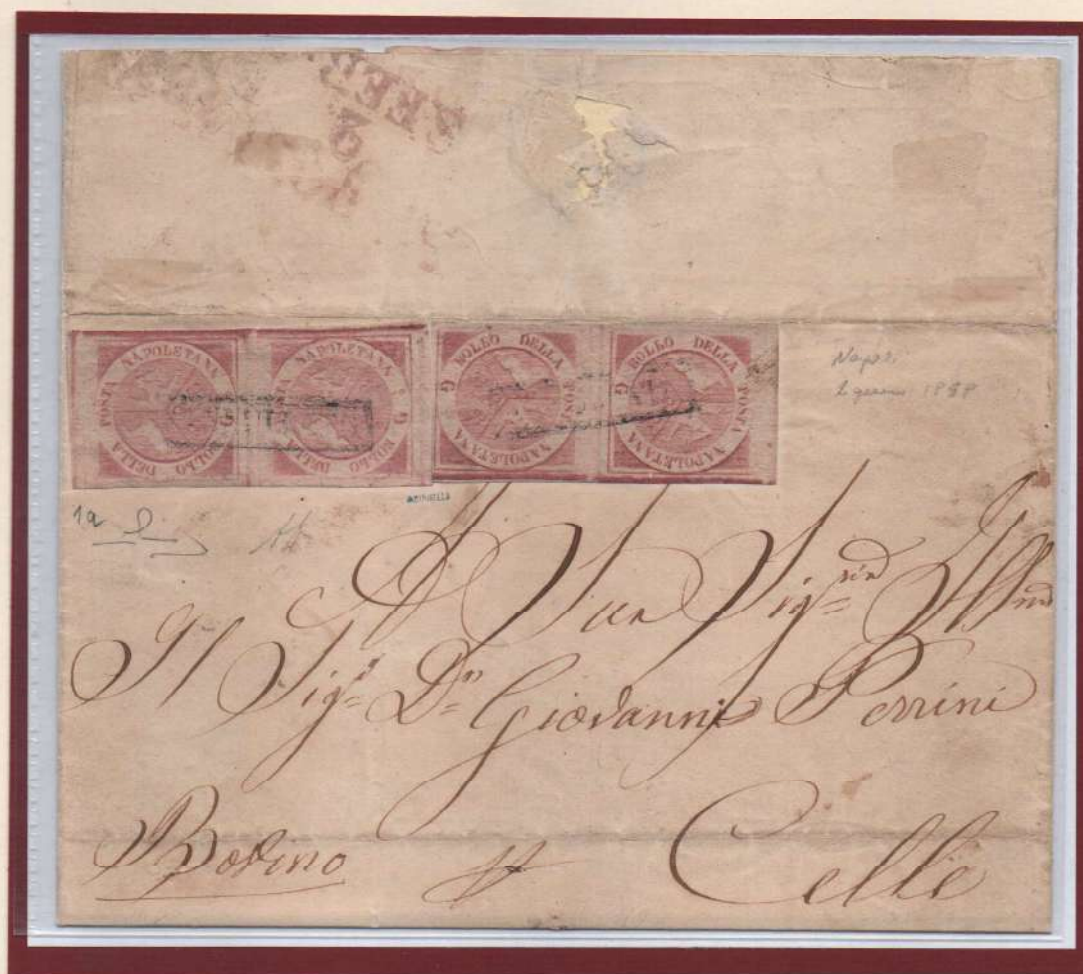 FEB
BOLLO DELLA POSTA NAPOLETANA G
BOLLO DELLA POSTA NAPOLETANA G
G BOLLO DELLA POSTA NAPOLETANA
G BOLLO DELLA POSTA NAPOLETANA
Napoli
1858
1a
A Sua Sig.ria Ill.ma
Il Sig.r D.n Giovanni Perrini
Bovino
Celle